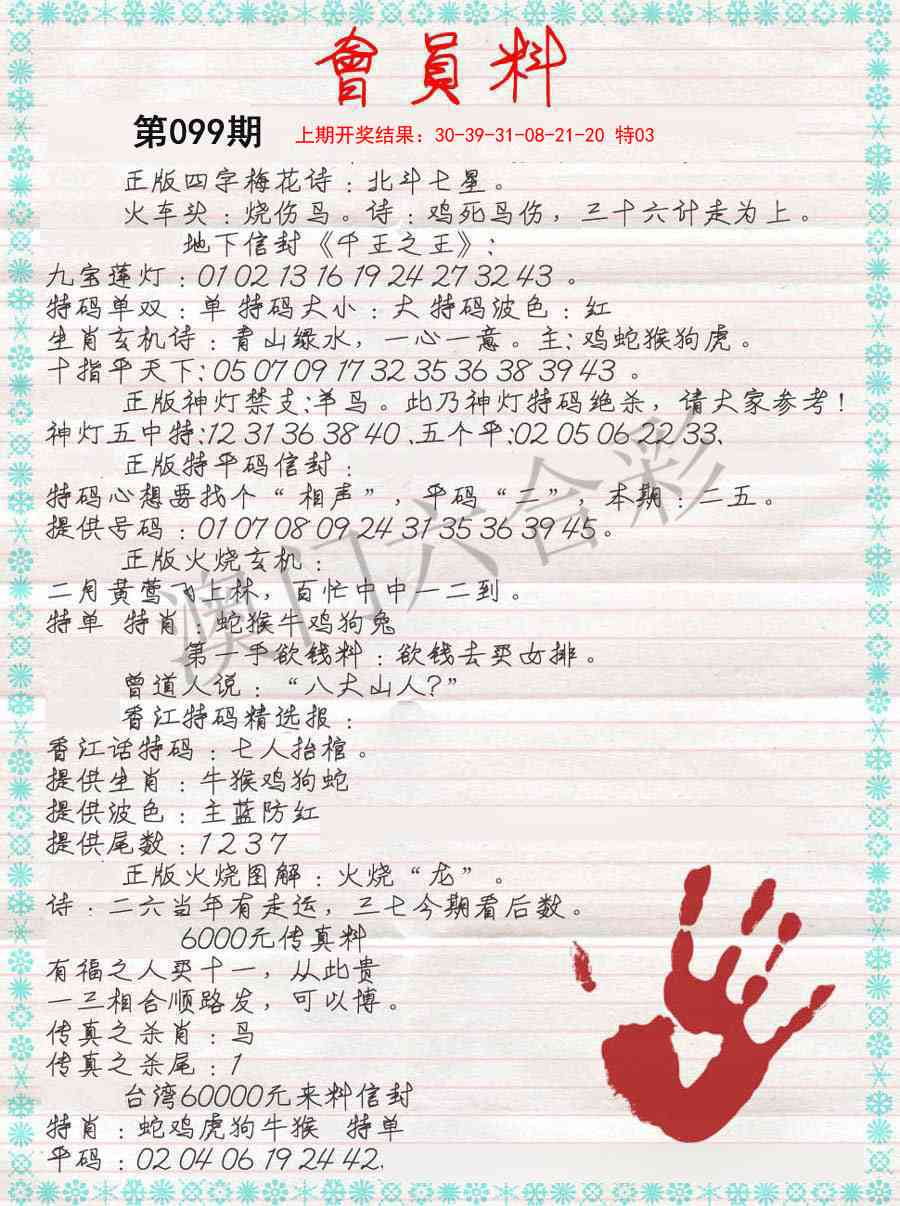 會員料
第099期 上期开奖结果：30-39-31-08-21-20 特03
正版四字梅花诗：北斗七星。
火车头：烧伤鸟。诗：鸡死鸟伤，三十六计走为上。
地下信封《千王之王》：
九宝莲灯：01 02 13 16 19 24 27 32 43 。
特码单双：单 特码大小：大 特码波色：红
生肖玄机诗：青山绿水，一心一意。主：鸡蛇猴狗虎。
十指平天下：05 07 09 17 32 35 36 38 39 43 。
正版神灯禁支：羊鸟。此乃神灯特码绝杀，请大家参考！
神灯五中特：12 31 36 38 40 、五个平：02 05 06 22 33、
正版特平码信封：
特码心想要找个“相声”，平码“三”，本期：二五。
提供号码：01 07 08 09 24 31 35 36 39 45。
正版火烧玄机：
二月黄莺飞上林，百忙中中一二到。
特单 特肖：蛇猴牛鸡狗兔
第一手欲钱料：欲钱去买女排。
曾道人说：“八大山人？”
香江特码精选报：
香江话特码：七人抬棺。
提供生肖：牛猴鸡狗蛇
提供波色：主蓝防红
提供尾数：1 2 3 7
正版火烧图解：火烧“龙”。
诗：二六当年有走运，三七今期看后数。
6000元传真料
有福之人买十一，从此贵
一三相合顺路发，可以博。
传真之杀肖：鸟
传真之杀尾：1
台湾60000元来料信封
特肖：蛇鸡虎狗牛猴 特单
平码：02 04 06 19 24 42.
澳门六合彩